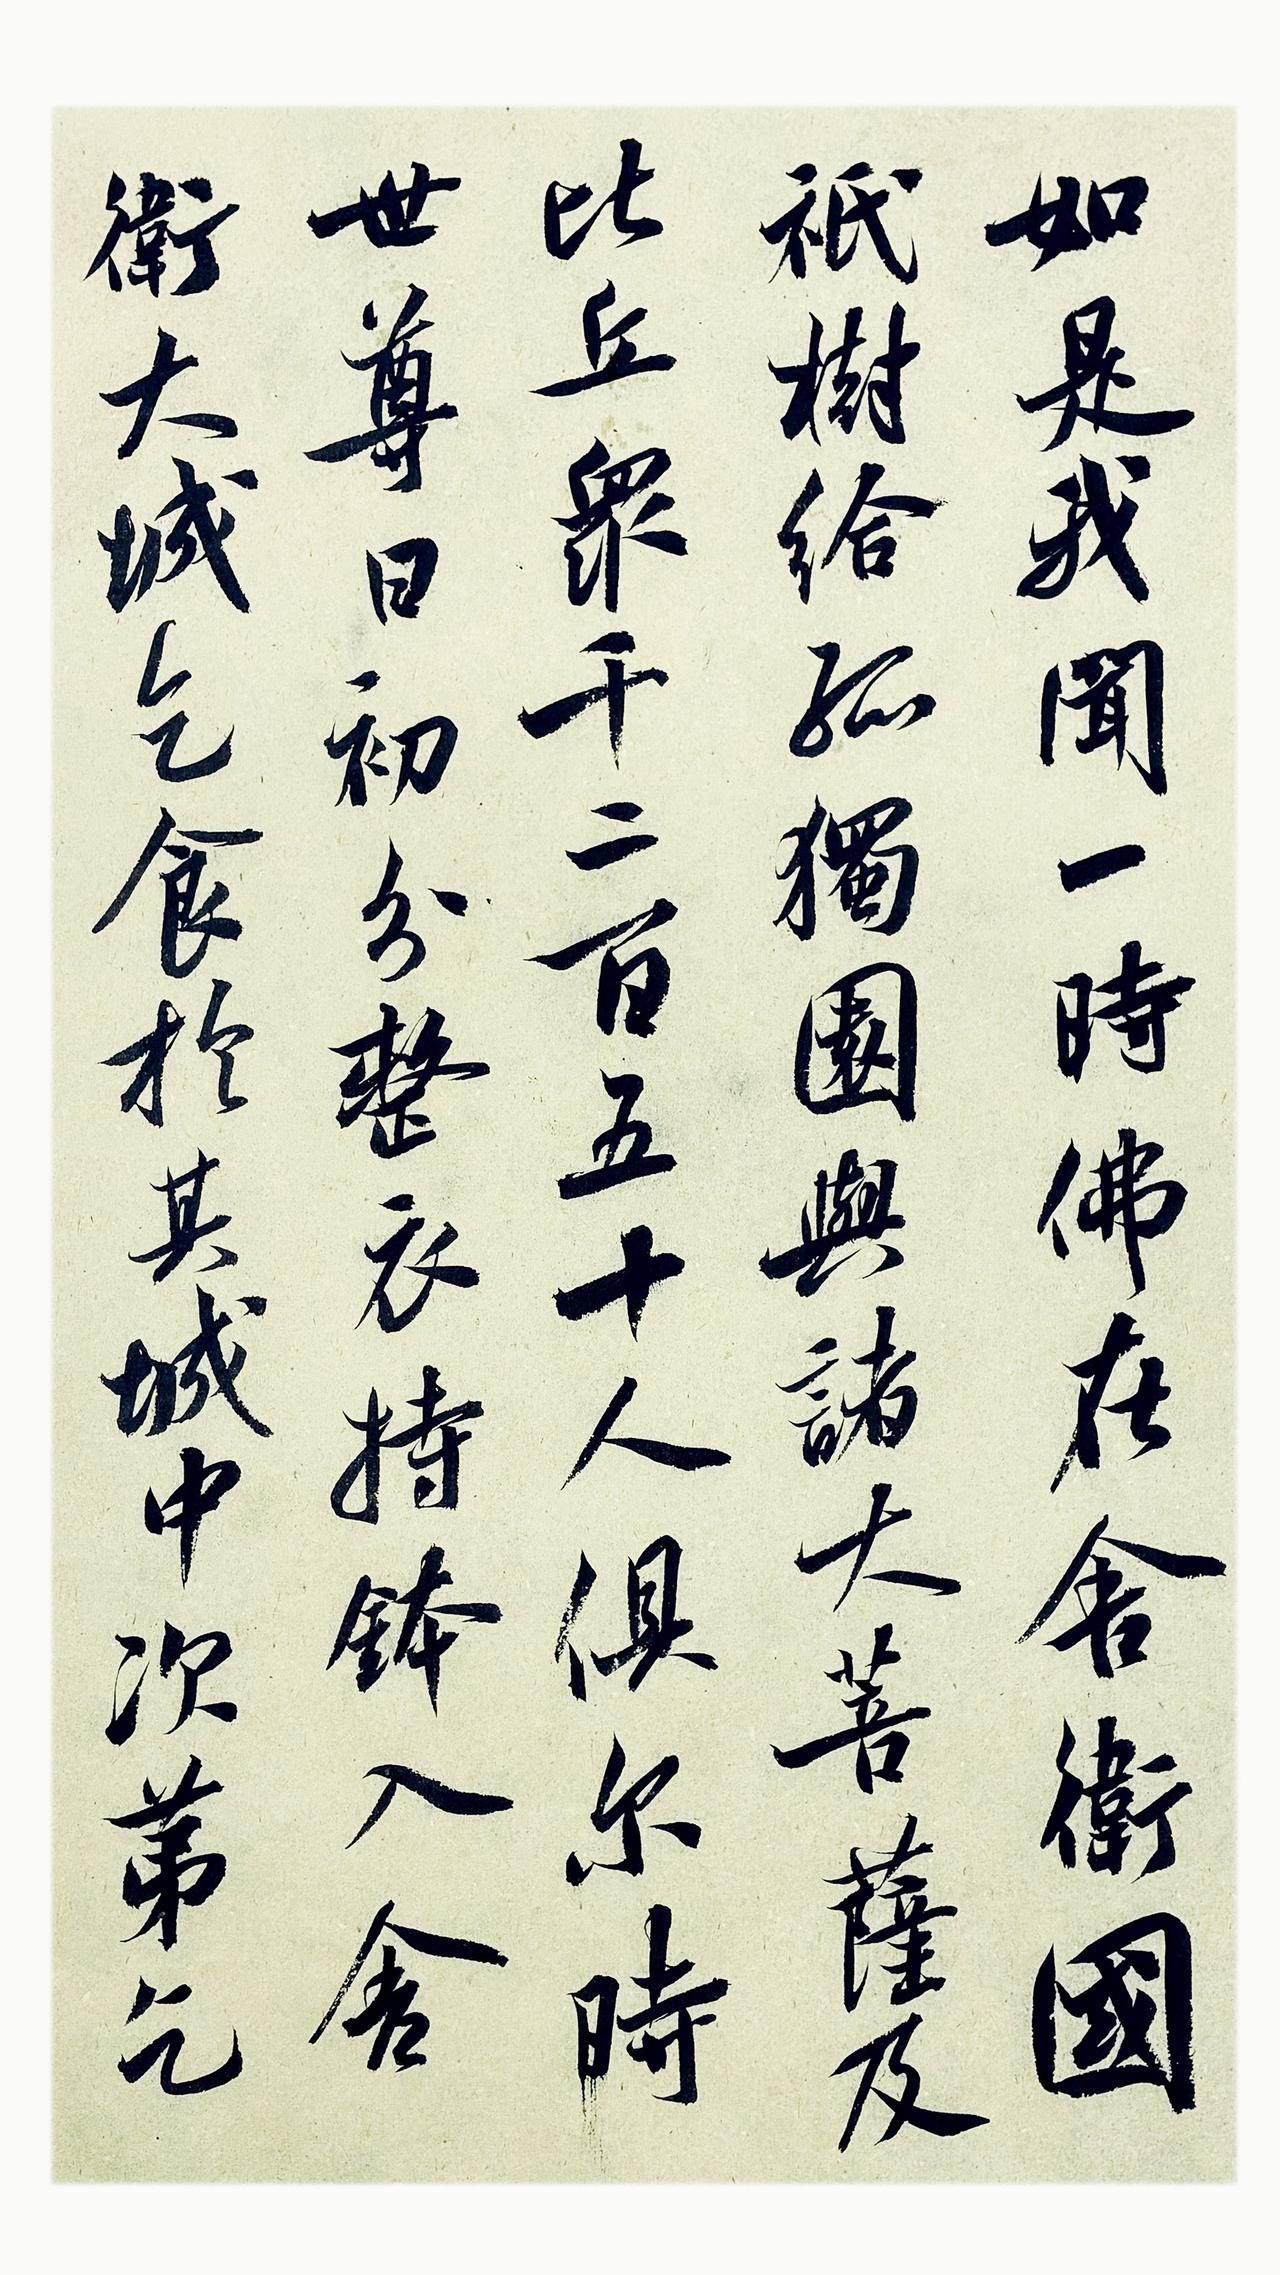 如是我聞一時佛在舍衛國
祇樹給孤獨園與諸大菩薩及
比丘眾千二百五十人俱尔時
世尊日初分整衣持鉢入舍
衛大城乞食於其城中次第乞